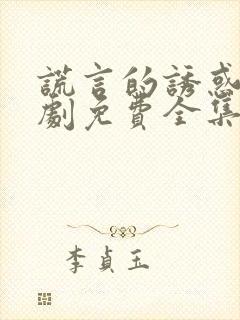 謊言的誘惑
劇免費全集
李貞玉